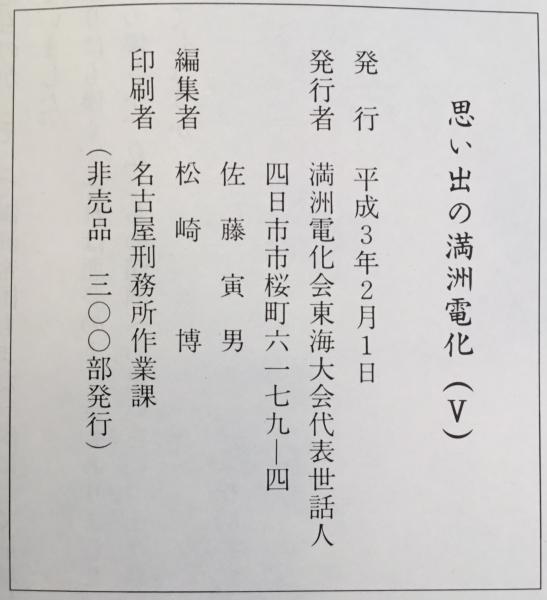 思い出の満洲電化（Ⅴ）
発行　平成3年2月1日
発行者　満洲電化会東海大会代表世話人
四日市市桜町六一七九―四
佐藤寅男
編集者　松崎　博
印刷者　名古屋刑務所作業課
（非売品　三〇〇部発行）